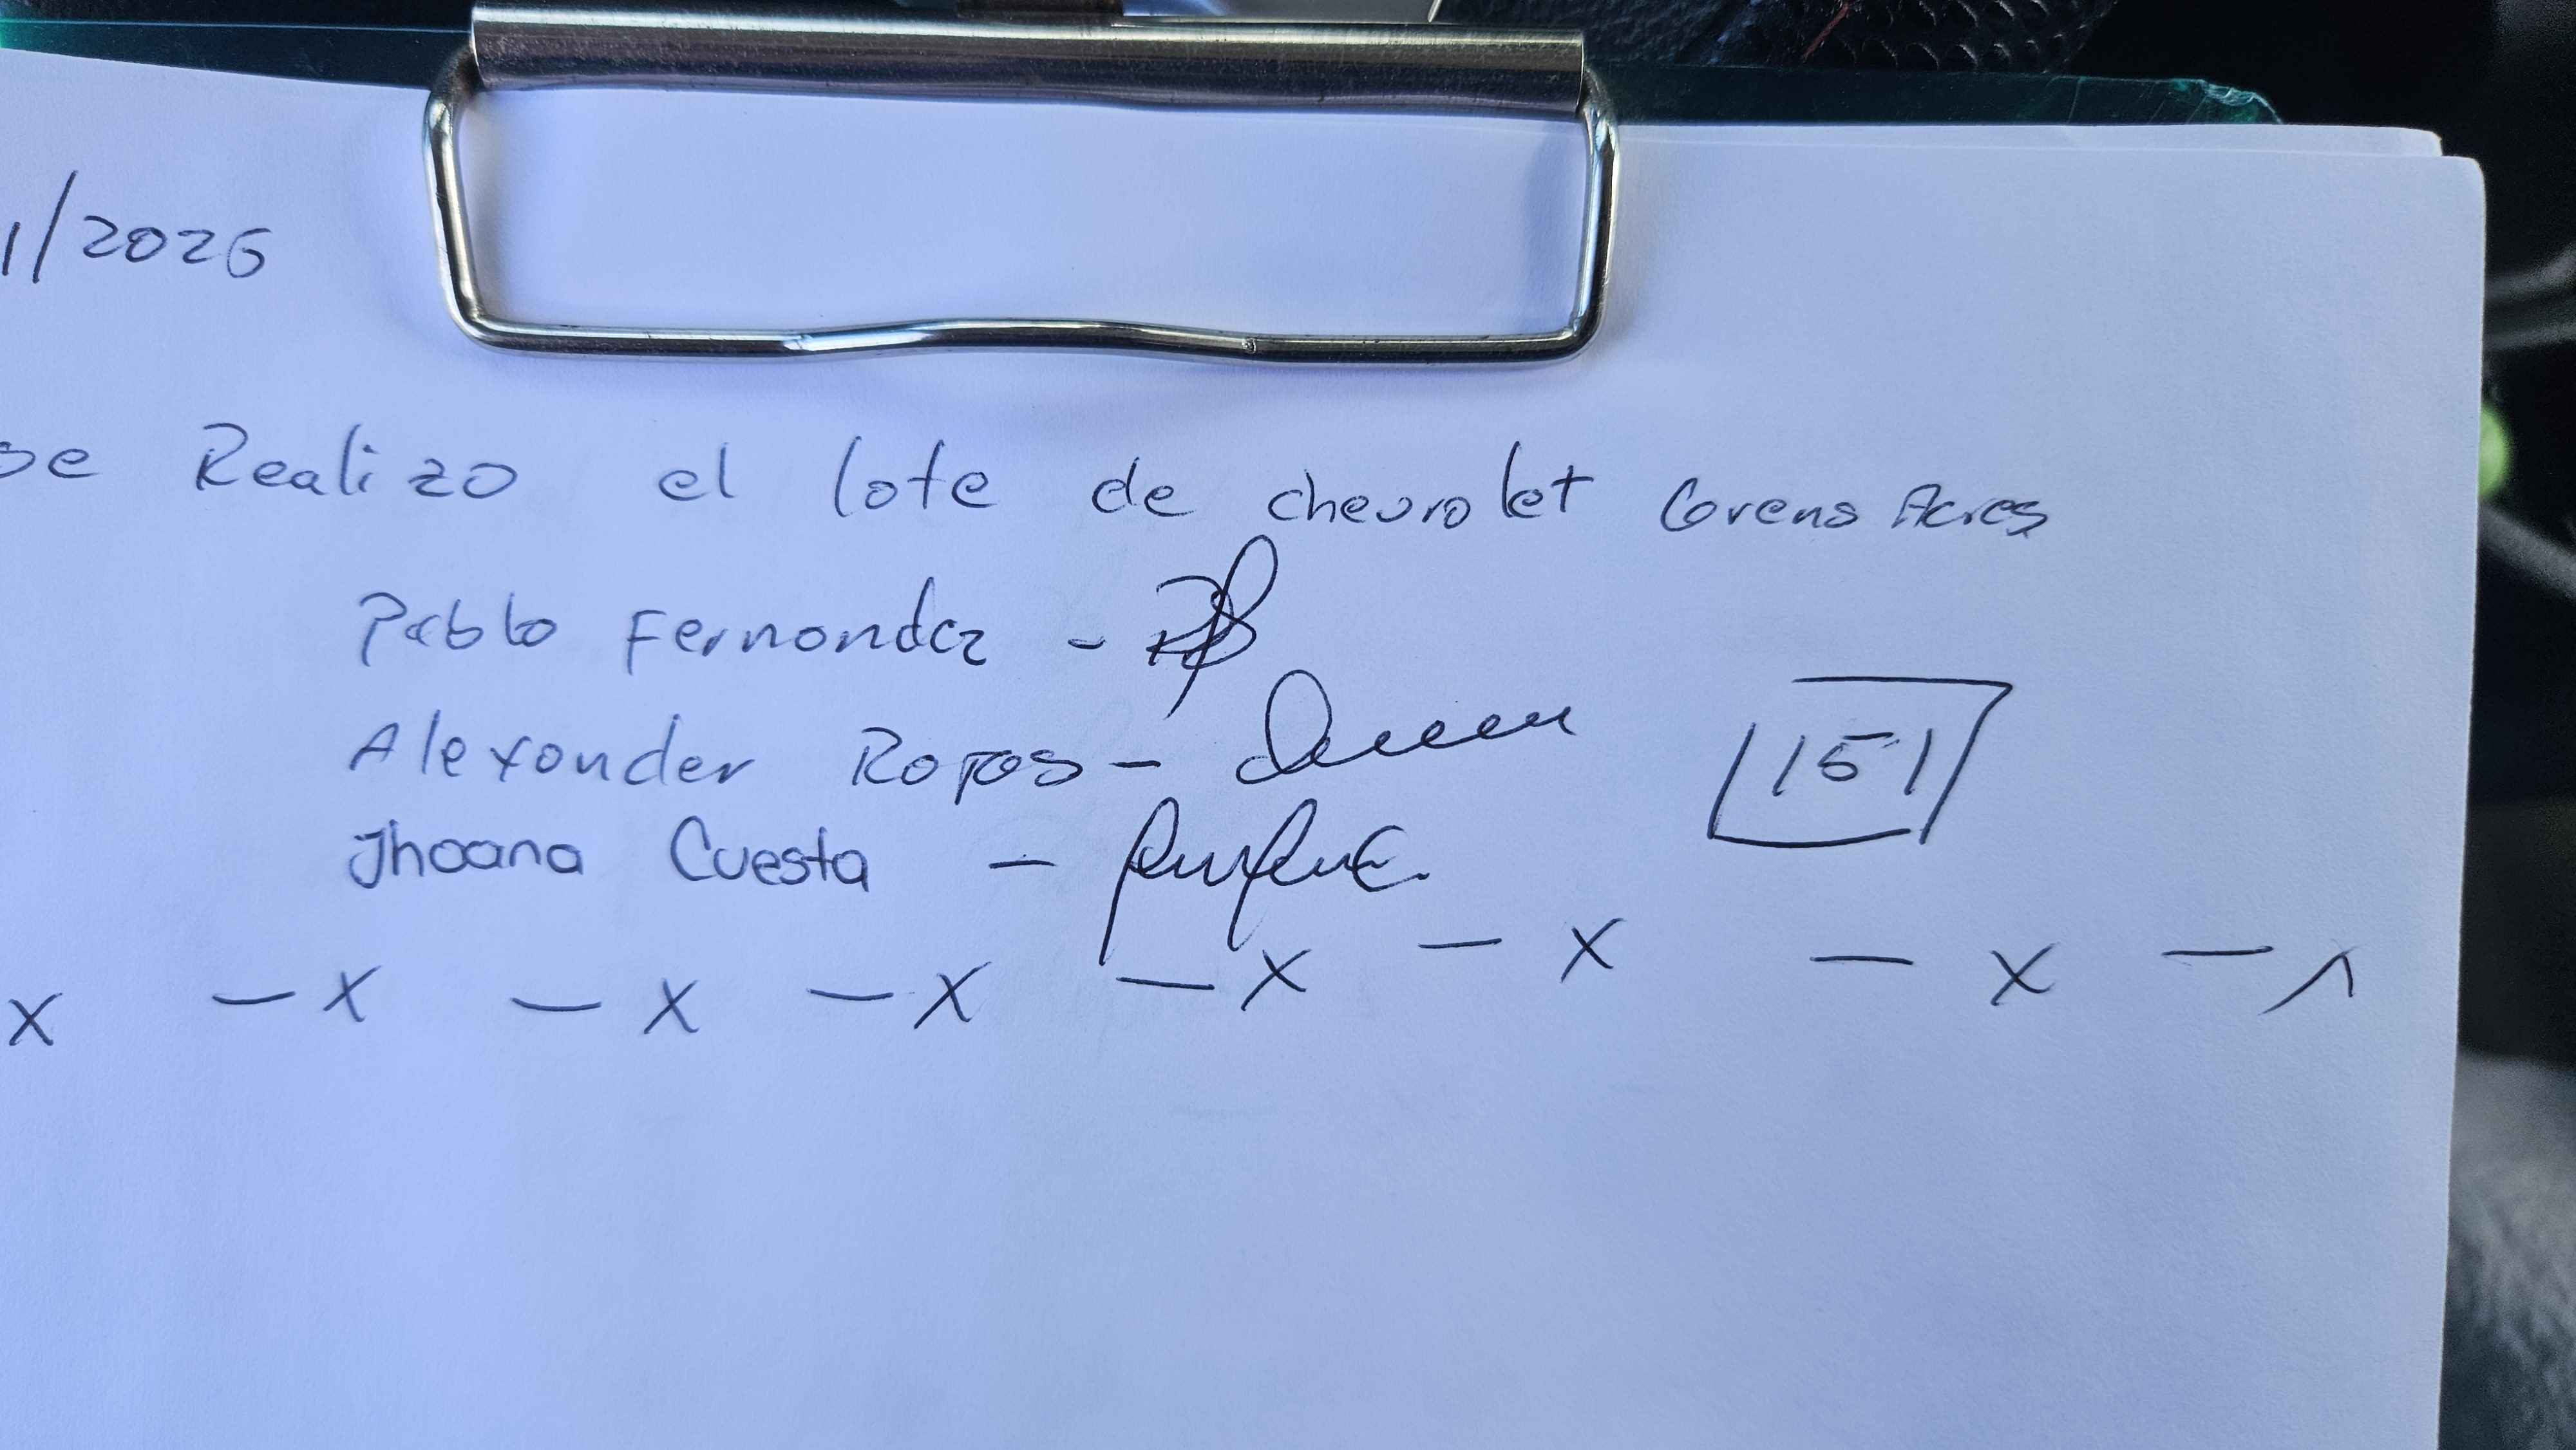 1/2026
se Realizo el lote de chevrolet Grens Acres
Pablo Fernandez -
Alexander Rojas -
Jhoana Cuesta -
151
x - x - x - x - x - x - x - x